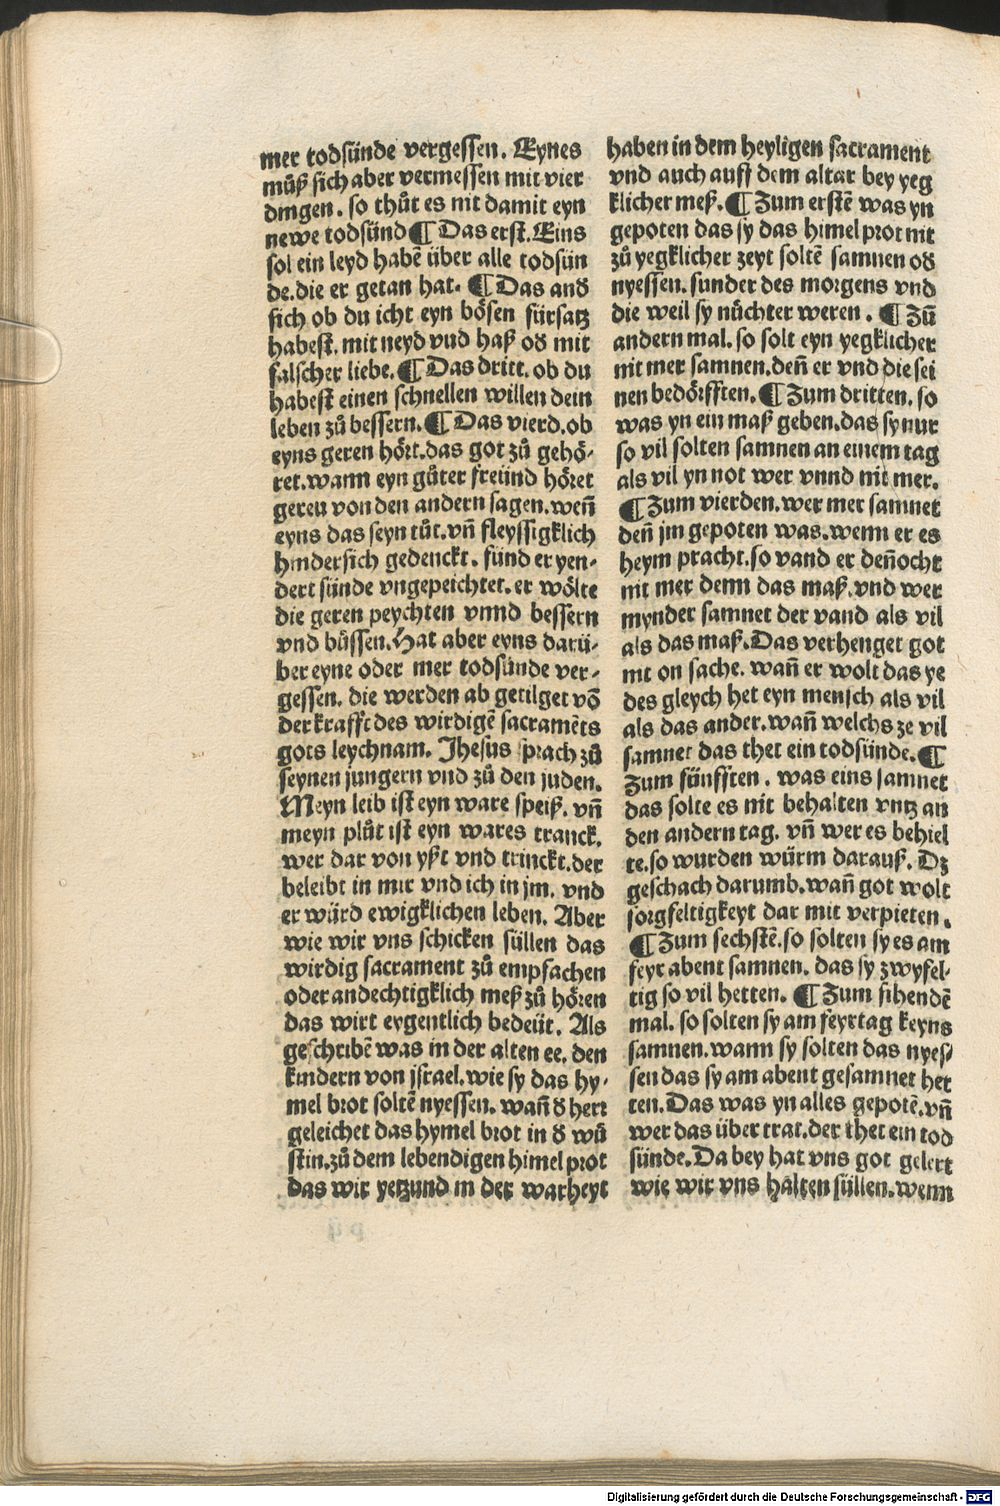 mer todsünde vergessen. Eynes
můß sich aber vermessen mit vier
dingen. so thůt es nit damit eyn
newe todsünd ¶ Das erst. Eins
sol ein leyd habē über alle todsün
de. die er getan hat. ¶ Das and
sich ob du icht eyn bösen fürsatz
habest. mit neyd vnd haß od mit
falscher liebe. ¶ Das dritt. ob du
habest einen schnellen willen dein
leben zů bessern. ¶ Das vierd. ob
eyns geren hört. das got zů gehö-
ret. wann eyn gůter freünd höret
geren von den andern sagen. weñ
eyns das seyn tůt. vñ fleyssigklich
hindersich gedenckt. fünd er yen-
dert sünde vngepeichtet. er wölte
die geren peychten vnnd bessern
vnd büssen. Hat aber eyns darü-
ber eyne oder mer todsünde ver-
gessen. die werden ab getilget vō
der krafft des wirdigē sacramēts
gots leychnam. Jhesus sprach zů
seynen jungern vnd zů den juden.
Meyn leib ist eyn ware speiß. vñ
meyn plůt ist eyn wares tranck.
wer dar von yßt vnd trinckt. der
beleibt in mir vnd ich in jm. vnd
er würd ewigklichen leben. Aber
wie wir vns schicken süllen das
wirdig sacrament zů empfachen
oder andechtigklich meß zů hören
das wirt eygentlich bedeüt. Als
geschribē was in der alten ee. den
kindern von jsrael. wie sy das hy-
mel brot soltē nyessen. wañ d herr
geleichet das hymel brot in d wů
stin. zů dem lebendigen himel prot
das wir yetzund in der warheyt
haben in dem heyligen sacrament
vnd auch auff dem altar bey yeg
klicher meß. ¶ Zum erstē was yn
gepoten das sy das himel prot nit
zů yegklicher zeyt soltē samnen od
nyessen. sunder des morgens vnd
die weil sy nüchter weren. ¶ Zū
andern mal. so solt eyn yegklicher
nit mer samnen. deñ er vnd die sei
nen bedörfften. ¶ Zum dritten. so
was yn ein maß geben. das sy nur
so vil solten samnen an einem tag
als vil yn not wer vnnd nit mer.
¶ Zum vierden. wer mer samnet
deñ jm gepoten was. wenn er es
heym pracht. so vand er deñocht
nit mer denn das maß. vnd wer
mynder samnet der vand als vil
als das maß. Das verhenget got
nit on sache. wañ er wolt das ye
des gleych het eyn mensch als vil
als das ander. wañ welchs ze vil
samnet das thet ein todsünde. ¶
Zum fünfften. was eins samnet
das solte es nit behalten vntz an
den andern tag. vñ wer es behiel
te. so wurden würm darauß. Dz
geschach darumb. wañ got wolt
sorgfeltigkeyt dar mit verpieten.
¶ Zum sechstē. so solten sy es am
feyr abent samnen. das sy zwyfel-
tig so vil hetten. ¶ Zum sibendē
mal. so solten sy am feyrtag keyns
samnen. wann sy solten das nyes-
sen das sy am abent gesamnet het
ten. Das was yn alles gepotē. vñ
wer das über trat. der thet ein tod
sünde. Da bey hat vns got gelert
wie wir vns halten süllen. wenn
Digitalisierung gefördert durch die Deutsche Forschungsgemeinschaft - DFG